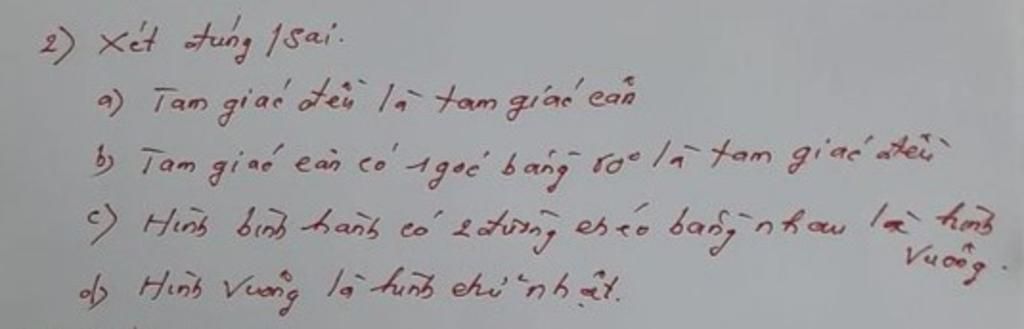 2) Xét đúng/sai.
a) Tam giác đều là tam giác cân
b) Tam giác cân có 1 góc bằng 60° là tam giác đều
c) Hình bình hành có 2 đường chéo bằng nhau là hình
vuông.
d) Hình vuông là hình chữ nhật.